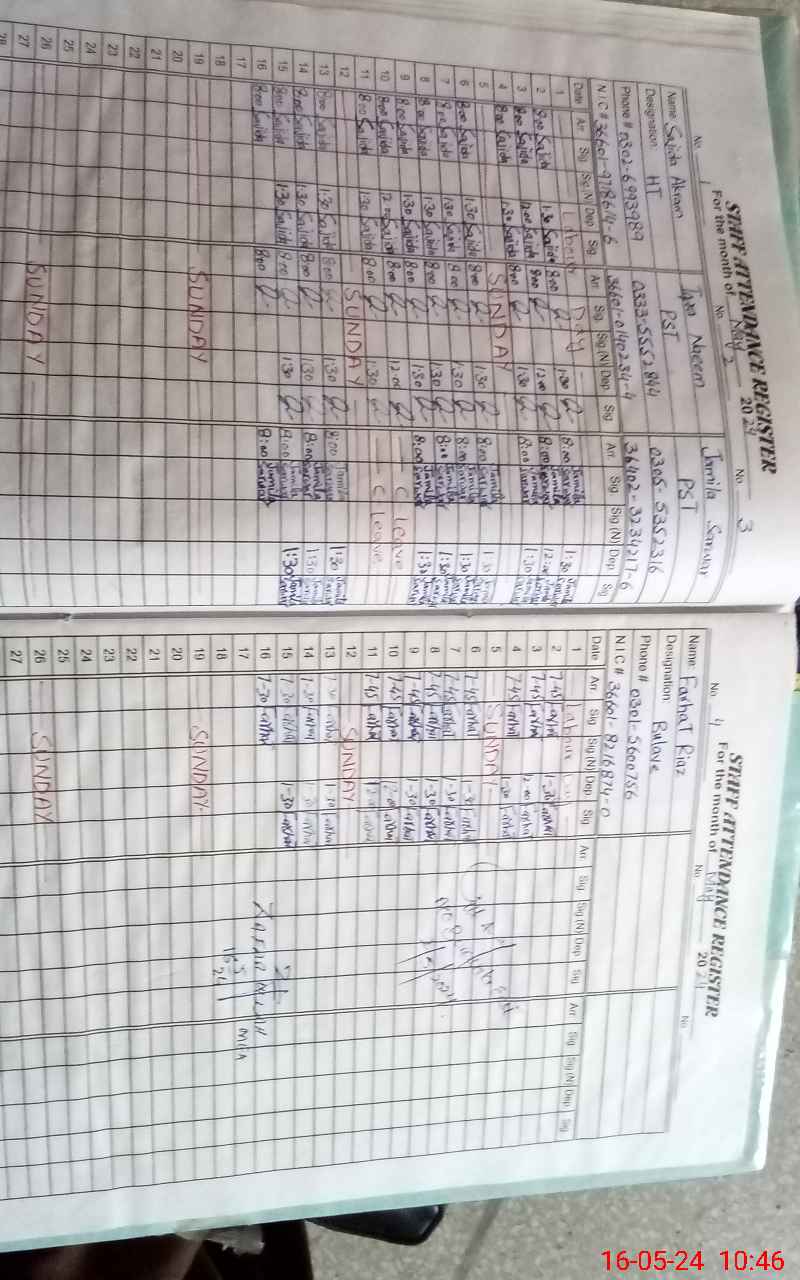 STAFF ATTENDANCE REGISTER
For the month of May 2024
No. 1 No. 2 No. 3
Name: Sajida Akram Iqra Naeem Jamila Sarwar
Designation: HT PST PST
Phone # 0302-6993989 0333-5552844 0305-5352316
N.I.C # 36601-9718614-6 36601-0140234-4 36402-3234217-6
Date Arr Sig Sig (N) Dep Sig Arr Sig Sig (N) Dep Sig Arr Sig Sig (N) Dep Sig
1 Labour Day
2 8:00 Sajida 1:30 Sajida 8:00 1:30 8:00 Jamila Sarwar 1:30 Jamila Sarwar
3 8:00 Sajida 12:00 Sajida 8:00 12:00 8:00 Jamila Sarwar 12:00 Jamila Sarwar
4 8:00 Sajida 1:30 Sajida 8:00 1:30 8:00 Jamila Sarwar 1:30 Jamila Sarwar
5 SUNDAY
6 8:00 Sajida 1:30 Sajida 8:00 1:30 8:00 1:30
7 8:00 Sajida 1:30 Sajida 8:00 1:30 8:00 Jamila Sarwar 1:30
8 8:00 Sajida 1:30 Sajida 8:00 1:30 8:00 Jamila Sarwar 1:30 Jamila Sarwar
9 8:00 Sajida 1:30 Sajida 8:00 1:30 8:00 Jamila Sarwar 1:30 Jamila Sarwar
10 8:00 Sajida 12:00 Sajida 8:00 12:00 C Leave
11 8:00 Sajida 1:30 Sajida 8:00 1:30 C Leave
12 SUNDAY
13 8:00 Sajida 1:30 Sajida 8:00 1:30 8:00 Jamila Sarwar 1:30 Jamila Sarwar
14 8:00 Sajida 1:30 Sajida 8:00 1:30 8:00 Jamila Sarwar 1:30 Jamila Sarwar
15 8:00 Sajida 1:30 Sajida 8:00 1:30 8:00 Jamila Sarwar 1:30 Jamila Sarwar
16 8:00 Sajida 8:00 8:00 Jamila Sarwar
17
18
19 SUNDAY
20
21
22
23
24
25
26 SUNDAY
27
28
STAFF ATTENDANCE REGISTER
For the month of May 2024
No. 4 No. No.
Name: Farhat Riaz
Designation:
Phone # 0301-5600756
N.I.C # 36601-8216874-0
Date Arr Sig Sig (N) Dep Sig Arr Sig Sig (N) Dep Sig Arr Sig Sig (N) Dep Sig
1 Labour Day
2 7-45 Farhat 1-30 Farhat
3 7-45 Farhat 12-00 Farhat
4 7-45 Farhat 1-30 Farhat
5 SUNDAY
6 7-45 Farhat 1-30 Farhat
7 7-45 Farhat 1-30 Farhat
8 7-45 Farhat 1-30 Farhat
9 7-45 Farhat 1-30 Farhat
10 7-45 Farhat 12-00 Farhat
11 7-45 Farhat Farhat
12 SUNDAY
13 7-30 Farhat 1-30 Farhat
14 7-30 Farhat 1-30 Farhat
15 7-30 Farhat 1-30 Farhat
16 7-30 Farhat
17
18
19 SUNDAY
20
21
22
23
24
25
26 SUNDAY
27
MEA
16-05-24 10:46